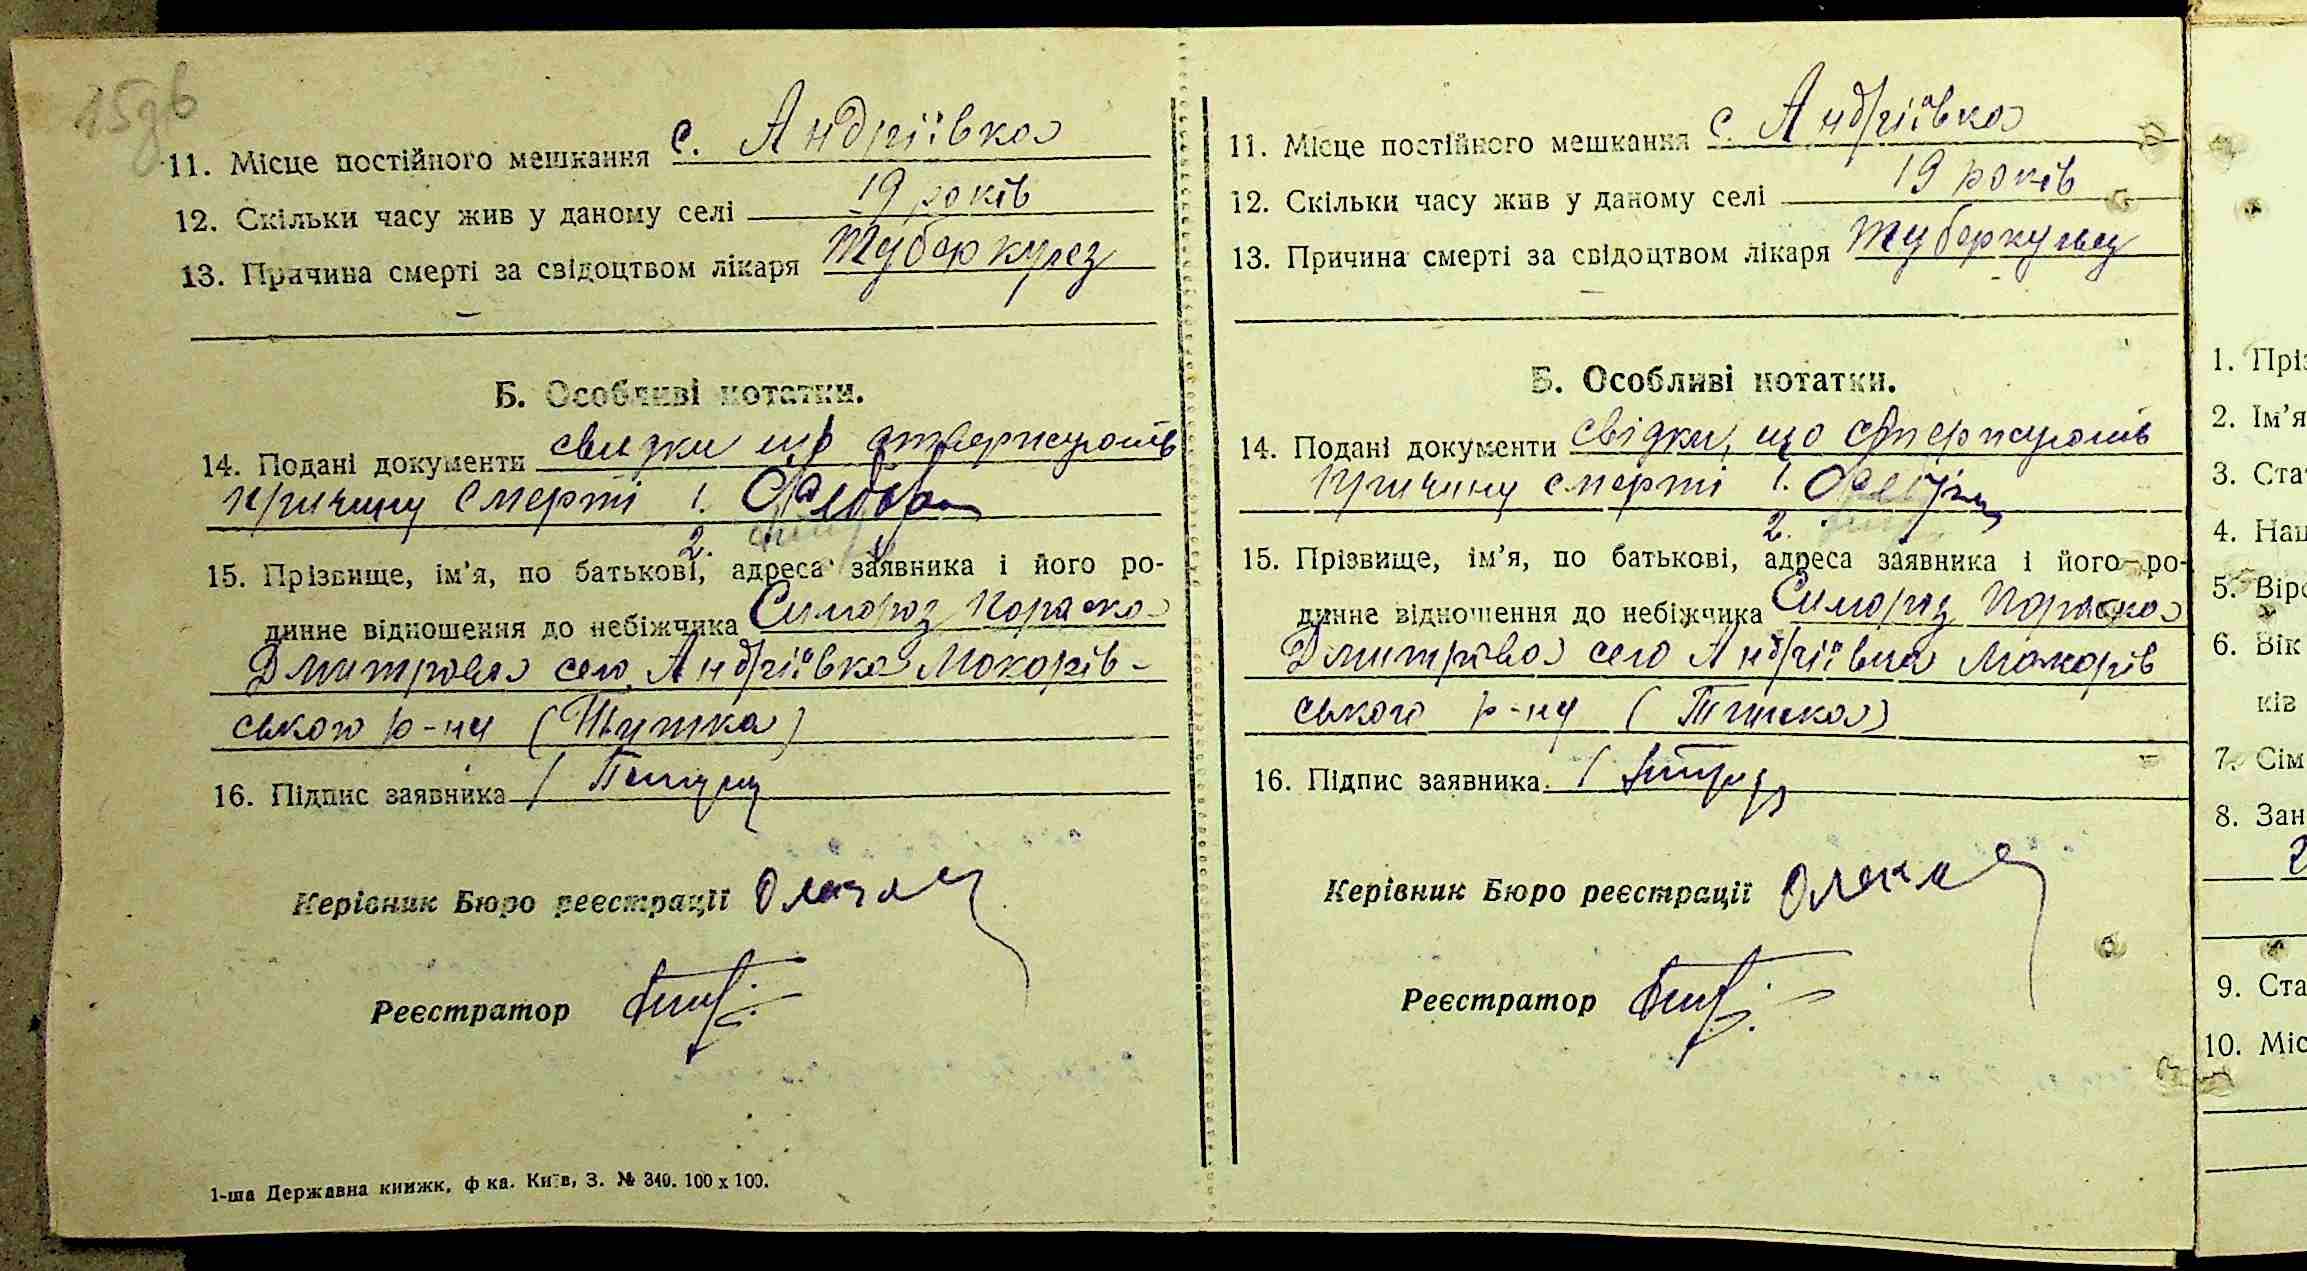 15зв
11. Місце постійного мешкання с. Андріївка
12. Скільки часу жив у даному селі 19 років
13. Причина смерті за свідоцтвом лікаря туберкулез
Б. Особливі нотатки.
14. Подані документи свидки що ствержують
причину смерті 1.
2.
15. Прізвище, ім'я, по батькові, адреса заявника і його ро-
динне відношення до небіжчика Симороз Параска
Дмитрова село Андріївка Макарів-
ського р-ну (Тьитка)
16. Підпис заявника
Керівник Бюро реєстрації
Реєстратор
1-ша Державна книжк. ф-ка. Київ, З. № 340. 100 х 100.
11. Місце постійного мешкання с. Андріївка
12. Скільки часу жив у даному селі 19 років
13. Причина смерті за свідоцтвом лікаря туберкульоз
Б. Особливі нотатки.
14. Подані документи свідки, що ствержують
причину смерті 1.
2.
15. Прізвище, ім'я, по батькові, адреса заявника і його ро-
динне відношення до небіжчика Симороз Параска
Дмитрова село Андріївка Макарів
ського р-ну
16. Підпис заявника
Керівник Бюро реєстрації
Реєстратор
1. Пріз
2. Ім'я
3. Ста
4. Нац
5. Віро
6. Вік
ків
7. Сім
8. Зан
9. Ста
10. Міс